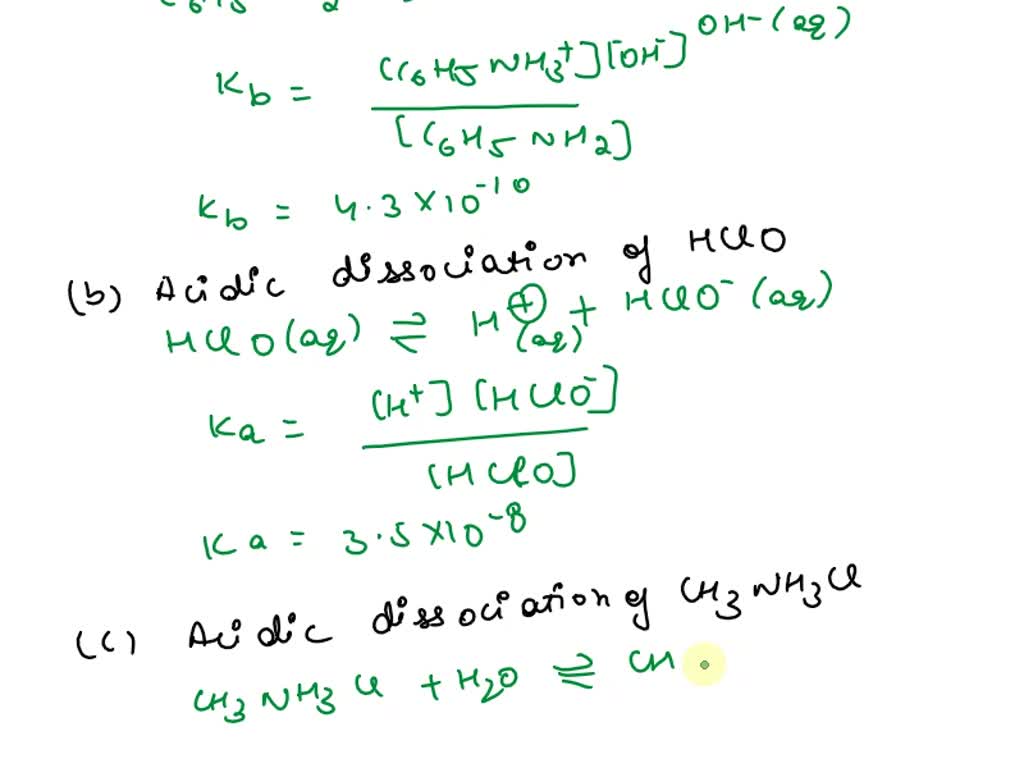 C6H5 2
OH-(aq)
Kb = [C6H5NH3+][OH-]
[C6H5NH2]
Kb = 4.3×10-10
(b) Acidic dissociation of HClO
HClO(aq) ⇌ H⊕(aq) + HClO-(aq)
Ka = [H+][HClO-]
[HClO]
Ka = 3.5×10-8
(c) Acidic dissociation of CH3NH3Cl
CH3NH3Cl + H2O ⇌ CH